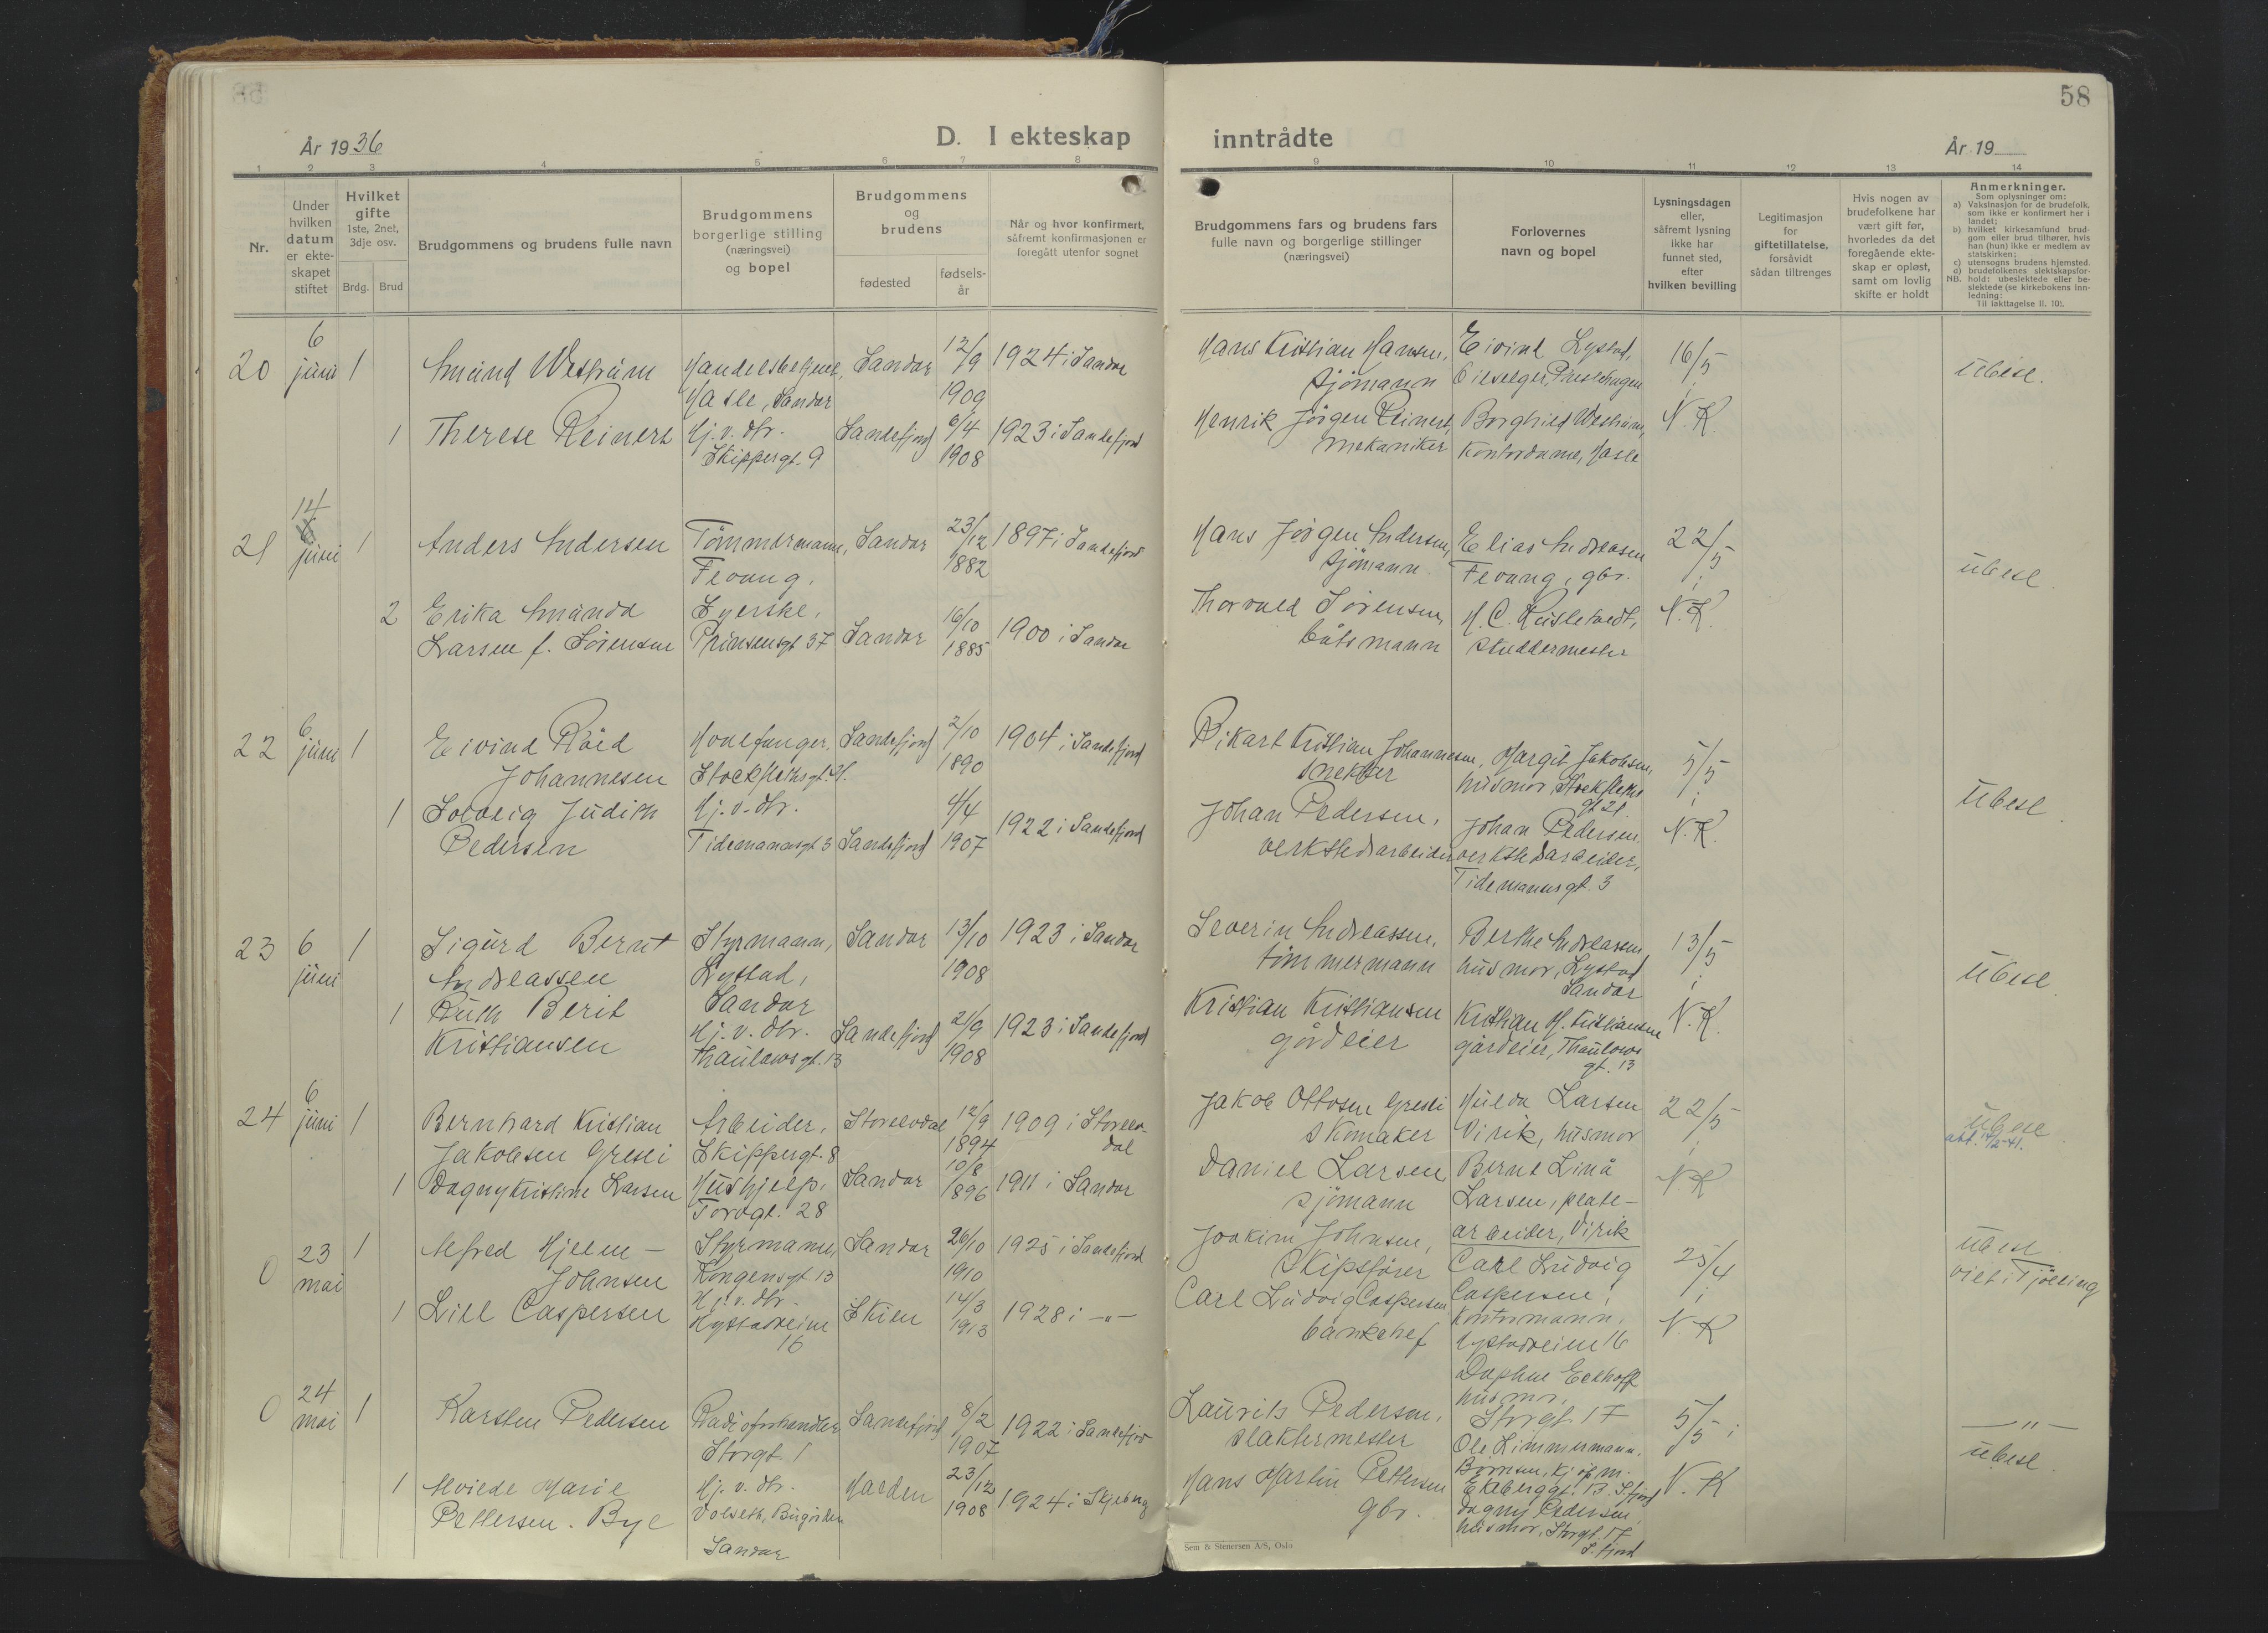 58
År 1936
D. I ekteskap
inntrådte
År 19
1 2 3 4 5 6 7 8 9 10 11 12 13 14
Nr.
Under
hvilken
datum
er ekte-
skapet
stiftet
Hvilket
gifte
1ste, 2net,
3dje osv.
Brdg. Brud
Brudgommens og brudens fulle navn
Brudgommens
borgerlige stilling
(næringsvei)
og bopel
Brudgommens
og
brudens
fødested
fødsels-
år
Når og hvor konfirmert,
såfremt konfirmasjonen er
foregått utenfor sognet
Brudgommens fars og brudens fars
fulle navn og borgerlige stillinger
(næringsvei)
Forlovernes
navn og bopel
Lysningsdagen
eller,
såfremt lysning
ikke har
funnet sted,
efter
hvilken bevilling
Legitimasjon
for
giftetillatelse,
forsåvidt
sådan tiltrenges
Hvis nogen av
brudefolkene har
vært gift før,
hvorledes da det
foregående ekte-
skap er opløst,
samt om lovlig
skifte er holdt
Anmerkninger.
Som oplysninger om:
a) Vaksinasjon for de brudefolk,
som ikke er konfirmert her i
landet;
b) hvilket kirkesamfund brud-
gom eller brud tilhører, hvis
han (hun) ikke er medlem av
statskirken;
c) utensogns brudens hjemsted.
d) brudefolkenes slektskapsfor-
NB. hold: ubeslektede eller be-
slektede (se kirkebokens inn-
ledning:
Til iakttagelse II. 10).
20
6
juni
1
Amund Westrum
Handelsbetjent,
Hasle, Sandar
Sandar
12/9
1909
1924 i Sandar
Hans Kristian Hansen,
sjømann
Eivind Lystad,
16/5
i
ubesl.
1
Therese Reinert
Hj.v. dtr.
Skippergt. 9
Sandefjord
6/4
1908
1923 i Sandefjord
Henrik Jörgen Reinert,
mekaniker
Borghild Westrum,
Kontordame, Hasle
N.K.
21
14
juni
1
Anders Andersen
Tømmermann,
Fevang.
Sandar
23/12
1882
1897 i Sandefjord
Hans Jørgen Andersen,
sjømann
Elias Andreasen
Fevang, gbr.
22/5
i
ubesl.
2
Erika Amanda
Larsen f. Sörensen
Syerske,
Prinsensgt 37
Sandar
16/10
1885
1900 i Sandar
Thorvald Sörensen,
båtsmann
skreddermester
N.K.
22
6
juni
1
Eivind Röed
Johannesen
Hvalfanger,
Stockflethsgt. 21.
Sandefjord
2/10
1890
1904 i Sandefjord
Rikart Kristian Johannesen,
snekker
Margit Jakobsen,
husmor Stockfleths
gt 21.
5/5
i
ubesl.
1
Solveig Judith
Pedersen
Hj.v. dtr.
Tidemannsgt 3
Sandefjord
4/4
1907
1922 i Sandefjord
Johan Pedersen,
verkstedsarbeider
Johan Pedersen.
verkstedarbeider,
Tidemannsgt. 3
N.K.
23
6
juni
1
Sigurd Bernt
Andreassen
Styrmann,
Lystad,
Sandar
Sandar
13/10
1908
1923 i Sandar
Severin Andreassen,
tömmermann
Berthe Andreassen,
husmor, Lystad
Sandar
13/5
i
ubesl.
1
Ruth Berit
Kristiansen
Hj.v. dtr.
Thaulowsgt. 13
Sandefjord
21/9
1908
1923 i Sandefjord
Kristian Kristiansen
gårdeier
Kristian M. Kristiansen
gårdeier, Thaulows
gt. 13
N.K.
24
6
juni
1
Bernhard Kristian
Jakobsen Gresli
Arbeider,
Skippergt. 8
Storelvdal
12/9
1894
1909 i Storelv-
dal
Jakob Ottosen Gresli
skomaker
Hulda Larsen
Virik, husmor
22/5
i
ubesl.
1
Dagny Kristine Larsen
Hushjelp,
Torvgt. 28
Sandar
10/8
1896
1911 i Sandar
Daniel Larsen
sjömann
Bernt Linå
Larsen, plate-
arbeider, Virik
N.K
0
23
mai
1
Alfred Hjelm-
Johnsen
Styrmann,
Kongensgt 13
Sandar
26/10
1910
1925 i Sandefjord
Joakim Johnsen,
skipsfører
Carl Ludvig
Caspersen,
25/4
i
ubesl.
viet i Tjølling
1
Lill Caspersen
Hj.v. dtr.
Hystadveien
16
Skien
14/3
1913
1928 i —"—
Carl Ludvig Caspersen
banksjef
Kontormann,
Hystadveien 16
N.K
0
24
mai
1
Karsten Pedersen
Radioforhandler
Storgt. 1
Sandefjord
8/2
1907
1922 i Sandefjord
Laurits Pedersen,
slaktermester
Daphne Eckhoff
husmor,
Storgt. 17
5/5 i
—"—
ubesl.
1
Alvilde Marie
Pettersen. Bye
Hj.v. dtr.
Sandar
Halden
23/12
1908
1924 i Skjeberg
Hans Martin Pettersen
gbr.
Ole Zimmermann.
Ekeberggt. 13. S.fjord
Dagny Pedersen,
husmor, Storgt. 17
S.fjord
N.K
Sem & Stenersen A/S, Oslo